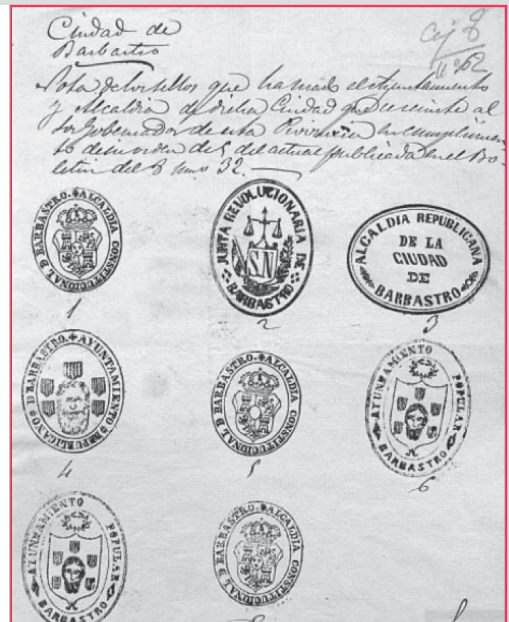 Ciudad de
Barbastro
Caj 8
nº 62
Nota de los sellos que ha usado el Ayuntamiento
y Alcaldia de dicha Ciudad que se remite al
Sr Gobernador de esta Provincia en cumplimien-
to de su orden de 5 del actual publicada en el Bo-
letin del 8 num 32.
ALCALDIA CONSTITUCIONAL D BARBASTRO.
1
JUNTA REVOLUCIONARIA DE
SN
BARBASTRO
2
ALCALDIA REPUBLICANA
DE LA
CIUDAD
DE
BARBASTRO
3
AYUNTAMIENTO REPUBLICANO D BARBASTRO.
4
ALCALDIA CONSTITUCIONAL D BARBASTRO.
5
AYUNTAMIENTO POPULAR.
BARBASTRO
6
AYUNTAMIENTO POPULAR.
BARBASTRO
ALCALDIA CONSTITUCIONAL D BARBASTRO.